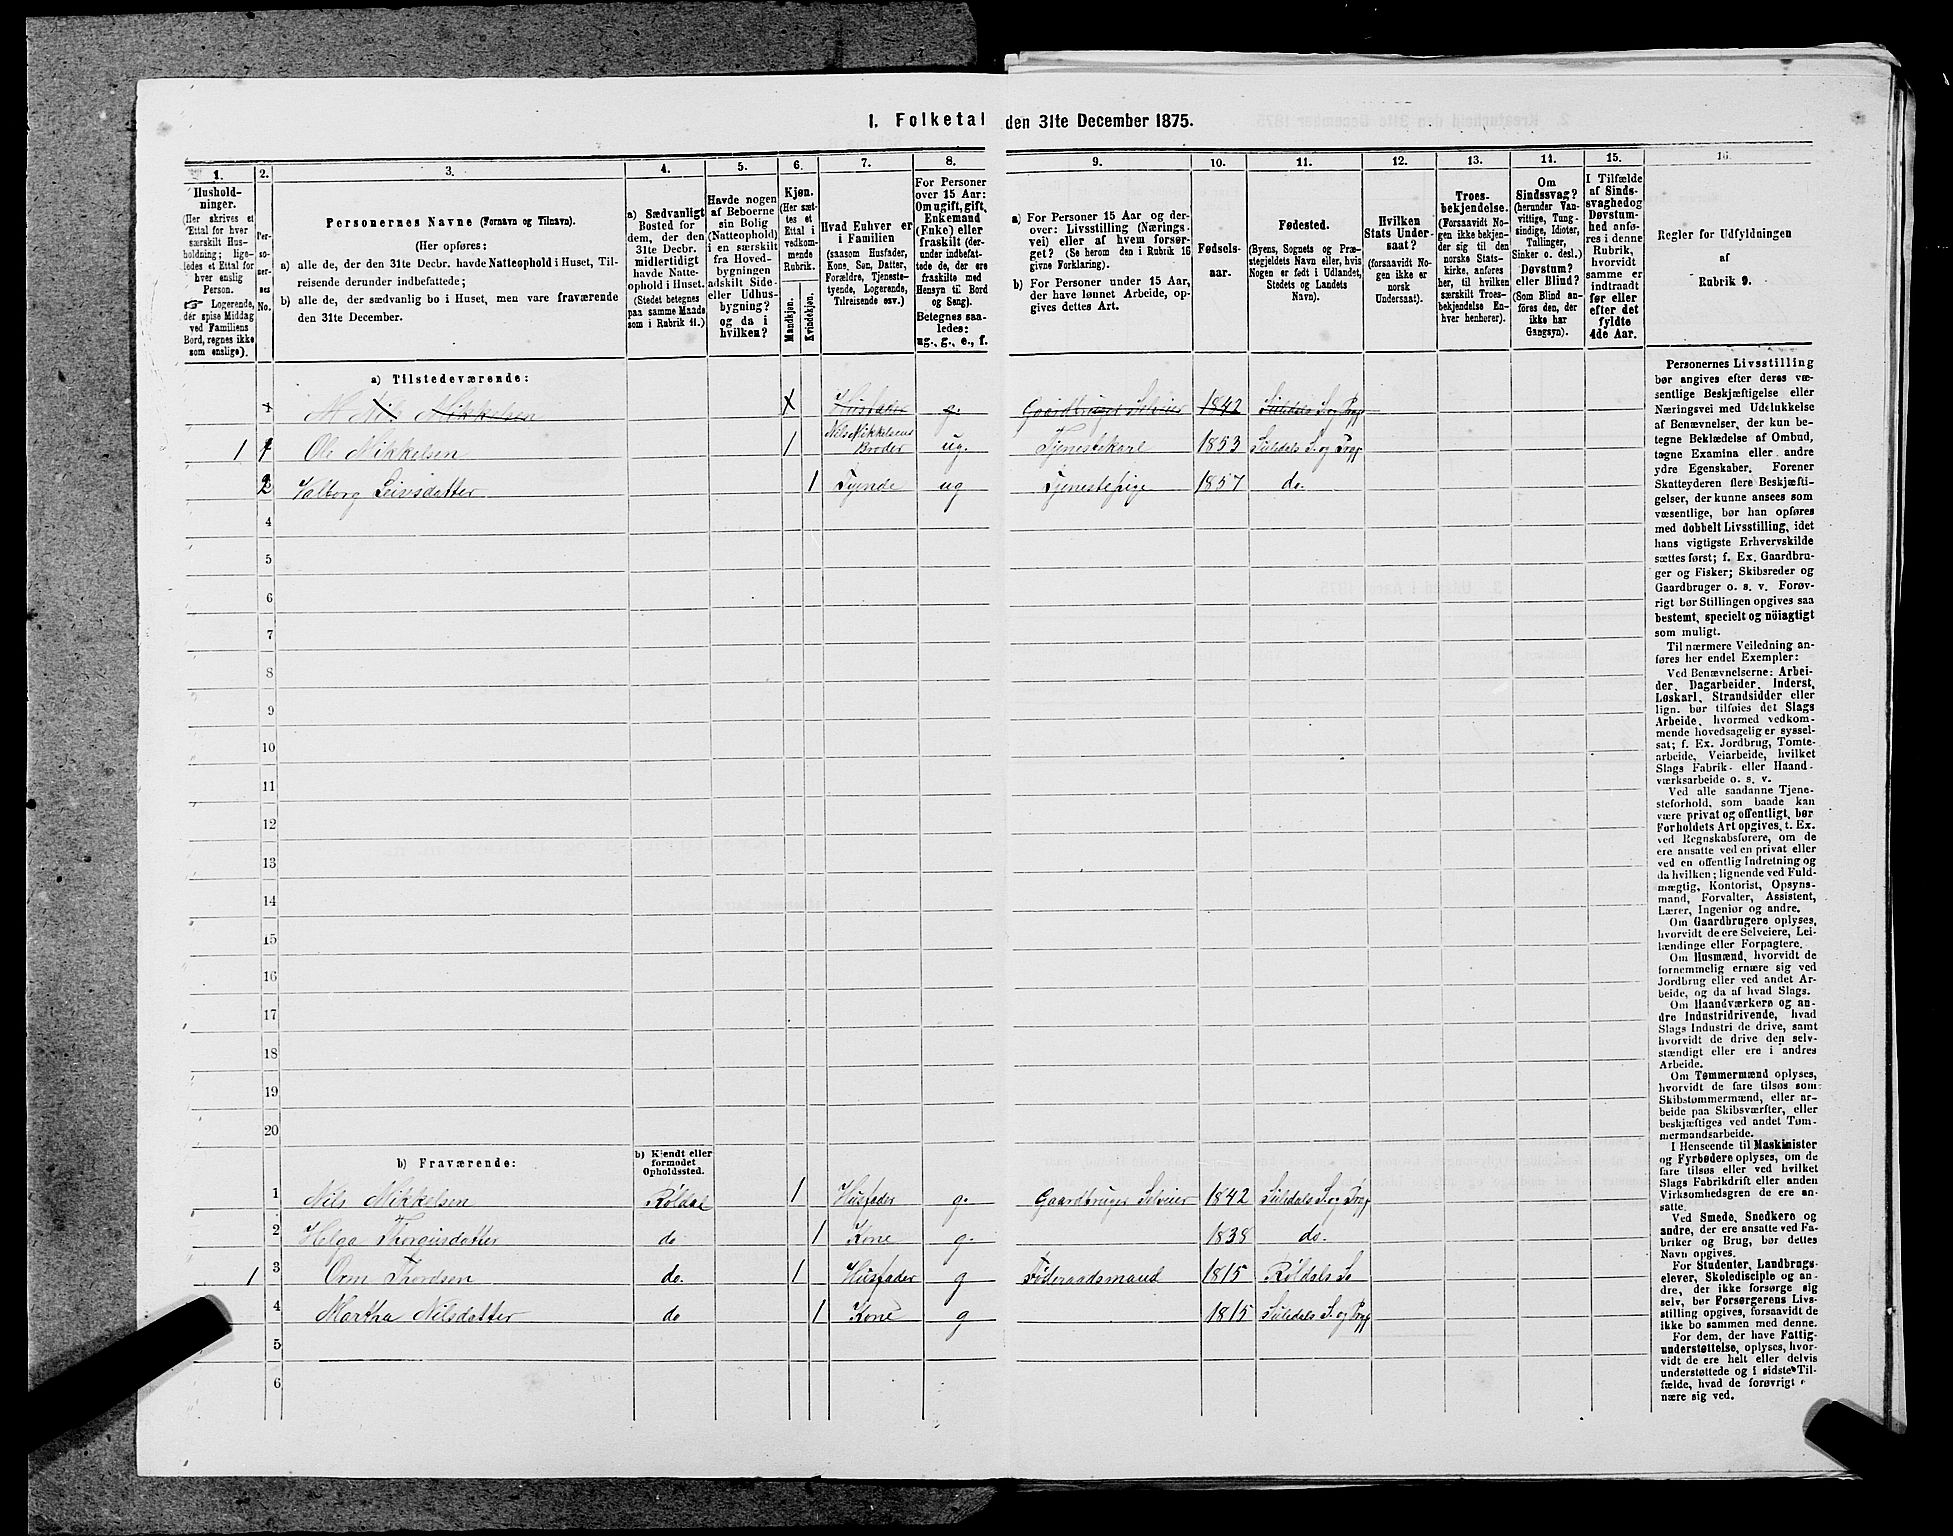 1. Folketal den 31te December 1875.
1.
2.
3.
4.
5.
6.
7.
8.
9.
10.
11.
12.
13.
14.
15.
16.
Hushold-
ninger.
(Her skrives et
Ettal for hver
særskilt Hus-
holdning; lige-
ledes et Ettal for
hver enslig
Person.
☞ Logerende,
der spise Middag
ved Familiens
Bord, regnes ikke
som enslige).
Per-
so-
ner-
nes
No.
Personernes Navne (Fornavn og Tilnavn).
(Her opføres:
a) alle de, der den 31te Decbr. havde Natteophold i Huset, Til-
reisende derunder indbefattede;
b) alle de, der sædvanlig bo i Huset, men vare fraværende
den 31te December.
a) Sædvanligt
Bosted for
dem, der den
31te Decbr.
midlertidigt
havde Natte-
ophold i Huset.
(Stedet betegnes
paa samme Maade
som i Rubrik 11.)
Havde nogen
af Beboerne
sin Bolig
(Natteophold)
i en særskilt
fra Hoved-
bygningen
adskilt Side-
eller Udhus-
bygning?
og da i
hvilken?
Kjøn.
(Her sæt-
tes et
Ettal i
vedkom-
mende
Rubrik.
Mandkjøn.
Kvindekjøn.
Hvad Enhver er
i Familien
(saasom Husfader,
Kone, Søn, Datter,
Forældre, Tjeneste-
tyende, Logerende,
Tilreisende osv.)
For Personer
over 15 Aar:
Om ugift, gift,
Enkemand
(Enke) eller
fraskilt (der-
under indbefat-
tede de, der ere
fraskilte med
Hensyn til Bord
og Seng).
Betegnes saa-
ledes:
ug., g., e., f.
a) For Personer 15 Aar og der-
over: Livsstilling (Nærings-
vei) eller af hvem forsør-
get? (Se herom den i Rubrik 16
givne Forklaring).
b) For Personer under 15 Aar,
der have lønnet Arbeide, op-
gives dettes Art.
Fødsels-
aar.
Fødested.
(Byens, Sognets og Præ-
stegjeldets Navn eller, hvis
Nogen er født i Udlandet,
Stedets og Landets
Navn).
Hvilken
Stats Under-
saat?
(forsaavidt No-
gen ikke er
norsk
Undersaat).
Troes-
bekjendelse.
(Forsaavidt No-
gen ikke bekjen-
der sig til den
norske Stats-
kirke, anføres
her, til hvilken
særskilt Troes-
bekjendelse En-
hver henhører).
Om
Sindssvag?
(herunder Van-
vittige, Tung-
sindige, Idioter,
Tullinger,
Sinker o. desl.)
Døvstum?
eller Blind?
(Som Blind an-
føres den, der
ikke har
Gangsyn).
I Tilfælde
af Sinds-
svaghed og
Døvstum-
hed anfø-
res i denne
Rubrik,
hvorvidt
samme er
indtraadt
før eller
efter det
fyldte
4de Aar.
Regler for Udfyldningen
af
Rubrik 9.
a) Tilstedeværende:
1 Nils Mikkelsen X Husfader g. Gaardbruger Selveier 1842 Suledals S. og Prgj
1 1 Ole Mikkelsen 1 Nils Mikkelsens Broder ug. Tjenestekarl 1853 Suledals S. og Prgj
2 Valborg Leivsdatter 1 Tyende ug Tjenestepige 1857 do.
4
5
6
7
8
9
10
11
12
13
14
15
16
17
18
19
20
b) Fraværende:
b) Kjendt eller
formodet
Opholdssted.
1 Nils Mikkelsen Røldal 1 Husfader g. Gaardbruger Selveier 1842 Suledals S. og Prgj
2 Helga Thorgiusdatter do 1 Kone g. 1838 do.
1 3 Orm Thordsen do. 1 Husfader g Føderaadsmand 1815 Røldals S
4 Martha Nilsdatter do 1 Kone g 1815 Suledals S. og Prgj
5
6
Personernes Livsstilling
bør angives efter deres væ-
sentlige Beskjæftigelse eller
Næringsvei med Udelukkelse
af Benævnelser, der kun be-
tegne Beklædelse af Ombud,
tagne Examina eller andre
ydre Egenskaber. Forener
Skatteyderen flere Beskjæfti-
gelser, der kunne ansees som
væsentlige, bør han opføres
med dobbelt Livsstilling, idet
hans vigtigste Erhvervskilde
sættes først; f. Ex. Gaardbru-
ger og Fisker; Skibsreder og
Gaardbruger o. s. v. Forøv-
rigt bør Stillingen opgives saa
bestemt, specielt og nöiagtigt
som muligt.
Til nærmere Veiledning an-
føres her endel Exempler:
Ved Benævnelserne: Arbei-
der, Dagarbeider, Inderst,
Løskarl, Strandsidder eller
lign. bør tilføies det Slags
Arbeide, hvormed vedkom-
mende hovedsagelig er syssel-
sat; f. Ex. Jordbrug, Tomte-
arbeide, Veiarbeide, hvilket
Slags Fabrik- eller Haand-
værksarbeide o. s. v.
Ved alle saadanne Tjene-
steforhold, som baade kan
være privat og offentligt, bør
Forholdets Art opgives, t. Ex.
ved Regnskabsførere, om de
ere ansatte ved en privat eller
ved en offentlig Indretning og
da hvilken; lignende ved Fuld-
mægtig, Kontorist, Opsyns-
mand, Forvalter, Assistent,
Lærer, Ingeniør og andre.
Om Gaardbrugere oplyses,
hvorvidt de ere Selveiere, Lei-
lændinge eller Forpagtere.
Om Husmænd, hvorvidt de
fornemmelig ernære sig ved
Jordbrug eller ved andet Ar-
beide, og da af hvad Slags.
Om Haandværkere og an-
dre Industridrivende, hvad
Slags Industri de drive, samt
hvorvidt de drive den selv-
stændigt eller ere i andres
Arbeide.
Om Tømmermænd oplyses,
hvorvidt de fare tilsøs som
Skibstømmermænd, eller ar-
beide paa Skibsværfter, eller
beskjæftiges ved andet Tøm-
mermandsarbeide.
I Henseende til Maskinister
og Fyrbødere oplyses, om de
fare tilsøs eller ved hvilket
Slags Fabrikdrift eller anden
Virksomhedsgren de ere an-
satte.
Ved Smede, Snedkere og
andre, der ere ansatte ved Fa-
briker og Brug, bør dettes
Navn opgives.
For Studenter, Landbrugs-
elever, Skoledisciple og an-
dre, der ikke forsørge sig
selv, bør Forsørgerens Livs-
stilling opgives, forsaavidt de
ikke bo sammen med denne.
For dem, der have Fattig-
understøttelse, oplyses, hvor-
vidt de ere helt eller delvis
understøttede og i sidste Til-
fælde, hvad de forøvrigt
nære sig ved.